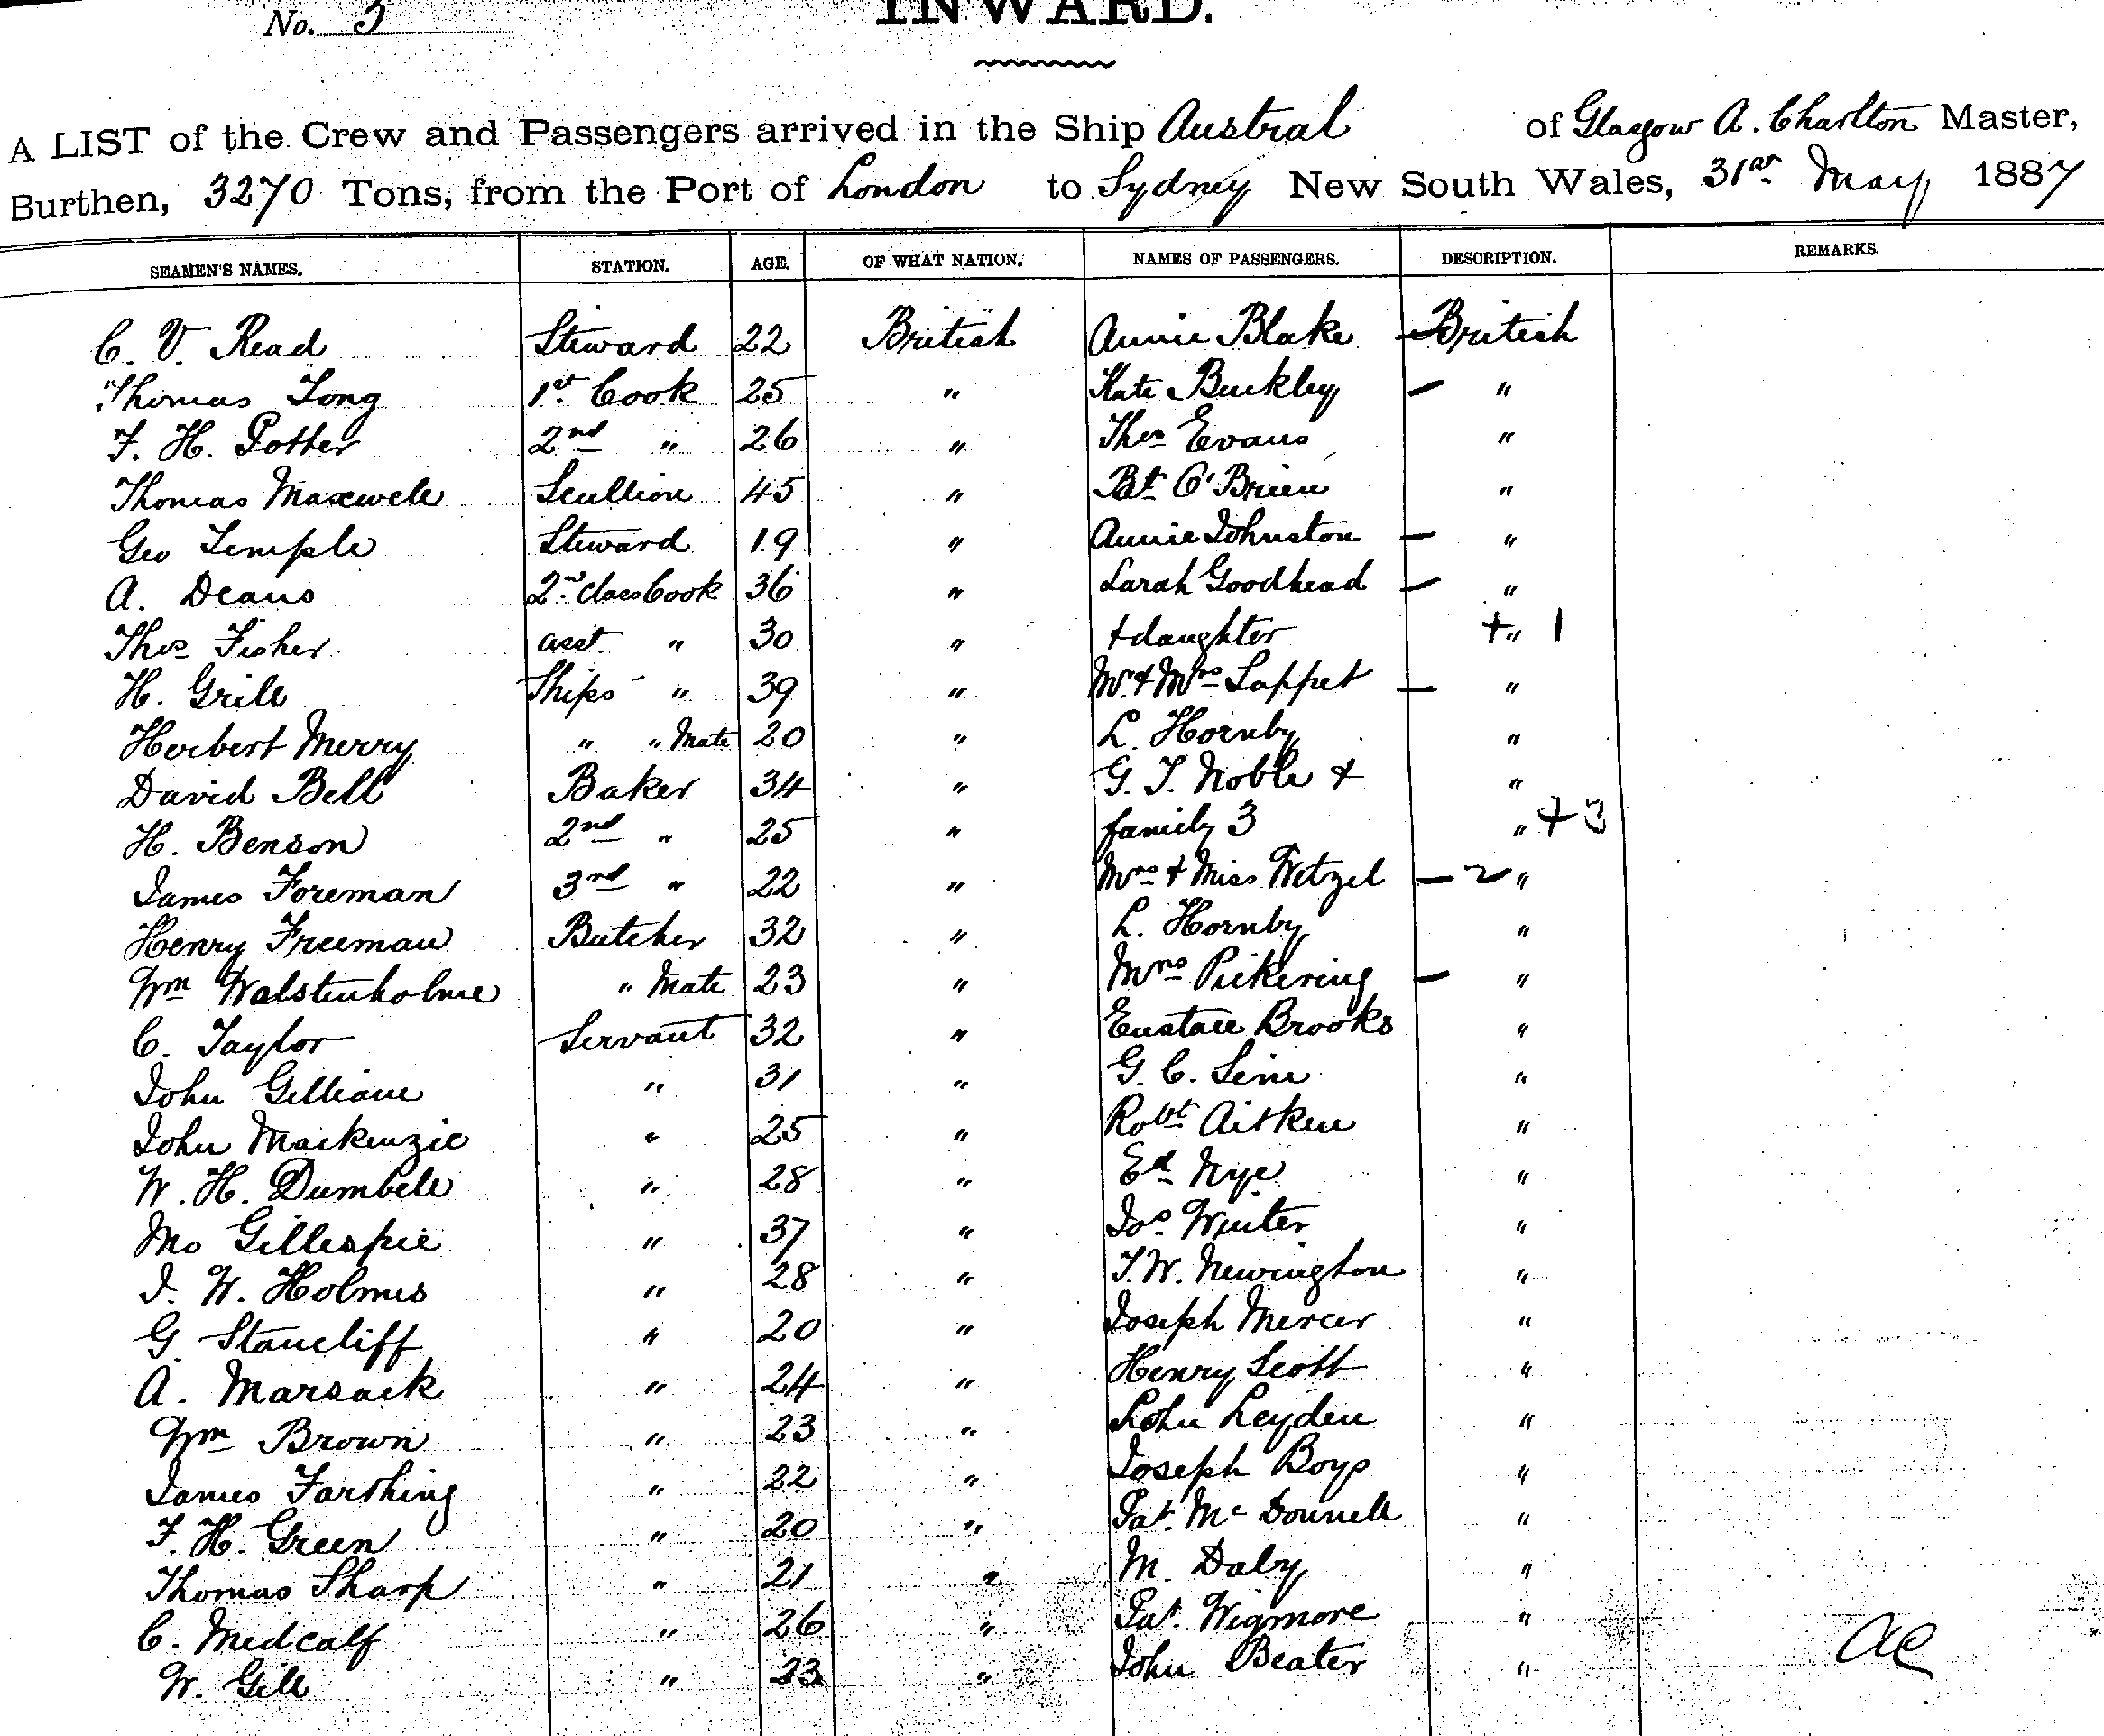 No. 3
INWARD.
A LIST of the Crew and Passengers arrived in the Ship Austral of Glasgow A. Charlton Master,
Burthen, 3270 Tons, from the Port of London to Sydney New South Wales, 31st May 1887
SEAMEN'S NAMES. STATION. AGE. OF WHAT NATION. NAMES OF PASSENGERS. DESCRIPTION. REMARKS.
C. V. Read Steward 22 British Annie Blake — British
Thomas Tong 1st Cook 25 " Kate Buckley — "
F. H. Potter 2nd " 26 " Thos Evans "
Thomas Maxwell Scullion 45 " Pat O'Brien "
Geo Temple Steward 19 " Annie Johnston — "
A. Deans 2nd Class Cook 36 " Sarah Goodhead — "
Thos Fisher asst " 30 " + daughter + " 1
H. Grill Ships " 39 " Mr. + Mrs Lappet — "
Herbert Merry " " Mate 20 " L. Hornby "
David Bell Baker 34 " G. T. Noble + "
H. Benson 2nd " 25 " family 3 " + 3
James Foreman 3rd " 22 " Mrs + Miss Wetzel — 2 "
Henry Freeman Butcher 32 " L. Hornby "
Wm Walstenholme " Mate 23 " Mrs Pickering — "
C. Taylor Servant 32 " Eustace Brooks "
John " 31 " G. C. "
John Mackenzie " 25 " Robt Aitken "
W. H. Dumbell " 28 " Ed Nye "
Gillespie " 37 " Jos Winter "
J. W. Holmes " 28 " T. W. Newington "
G. Stancliff " 20 " Joseph Mercer "
A. Marsack " 24 " Henry Scott "
Wm Brown " 23 " John Leyden "
James Farthing " 22 " Joseph Boys "
F. H. Green " 20 " Pat. McDonnell "
Thomas Sharp " 21 " M. Daly "
C. Medcalf " 26 " Pat. Wigmore "
W. Gill " 23 " John Beater "